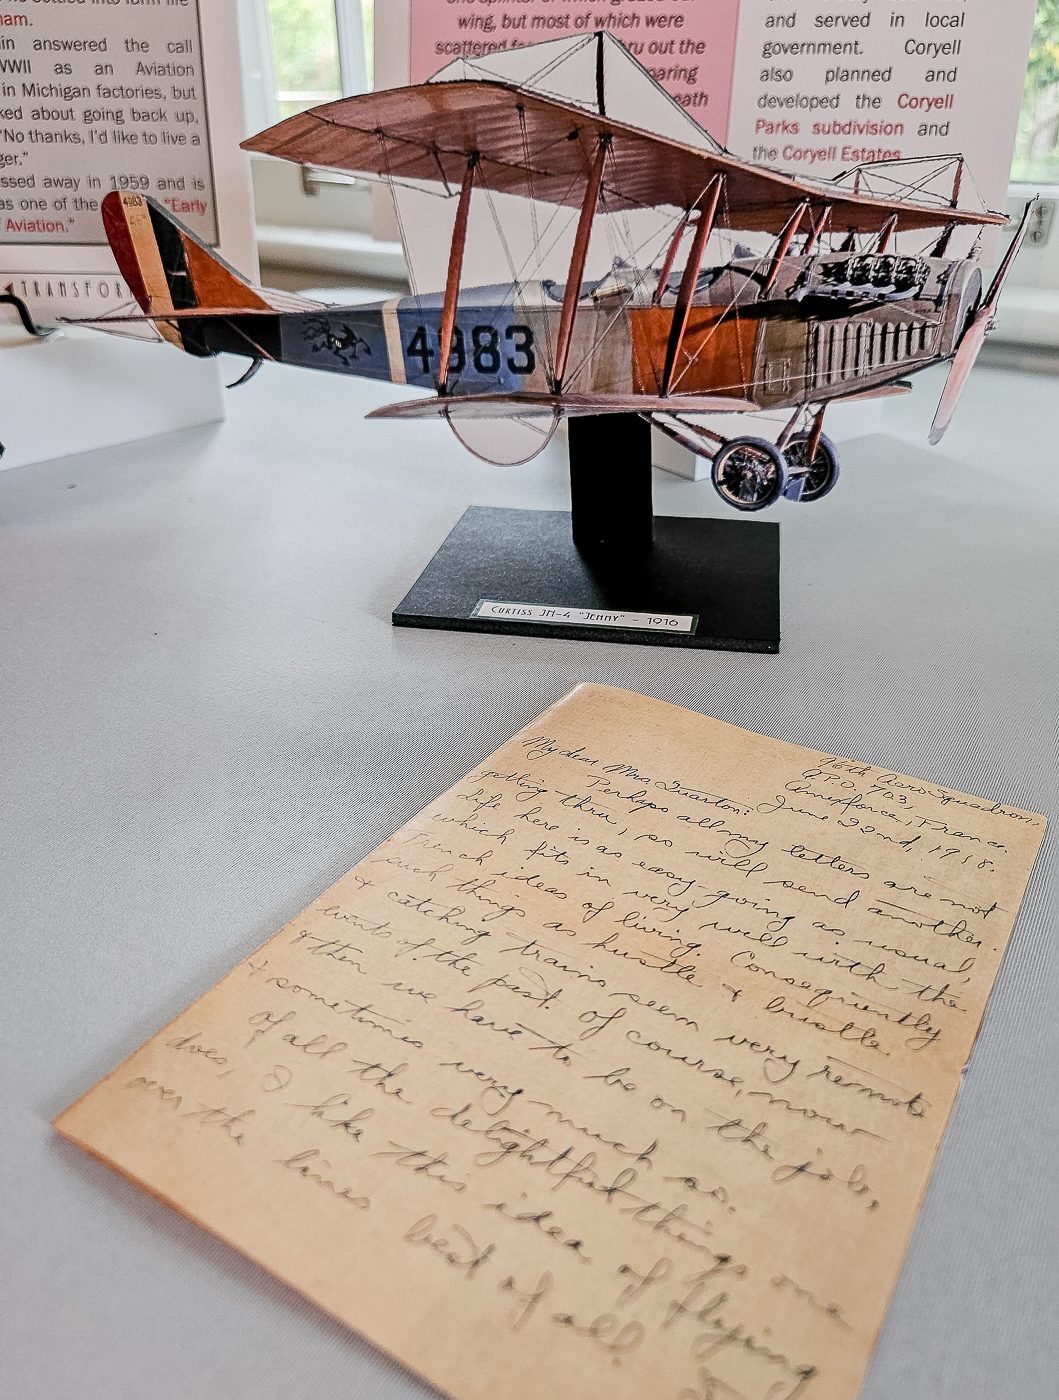 ham.
answered the call
WWII as an Aviation
in Michigan factories, but
ked about going back up,
"No thanks, I'd like to live a
ger."
ssed away in 1959 and is
as one of the "Early
Aviation."
TRANSFOR
wing, but most of which were
scattered thru out the
and served in local
government. Coryell
also planned and
developed the Coryell
Parks subdivision and
the Coryell Estates
4983
4983
CURTISS JN-4 "JENNY" - 1916
96th Aero Squadron,
A.P.O. 703,
Amexforce, France.
June 22nd, 1918.
My dear Mrs. Quarton:
Perhaps all my letters are not
getting thru, so will send another.
Life here is as easy-going as usual,
which fits in very well with the
French ideas of living. Consequently
such things as hustle & bustle
& catching trains seem very remote
events of the past. Of course, now
& then we have to be on the job,
& sometimes very much so.
Of all the delightful things one
does, I like this idea of flying
over the lines best of all.